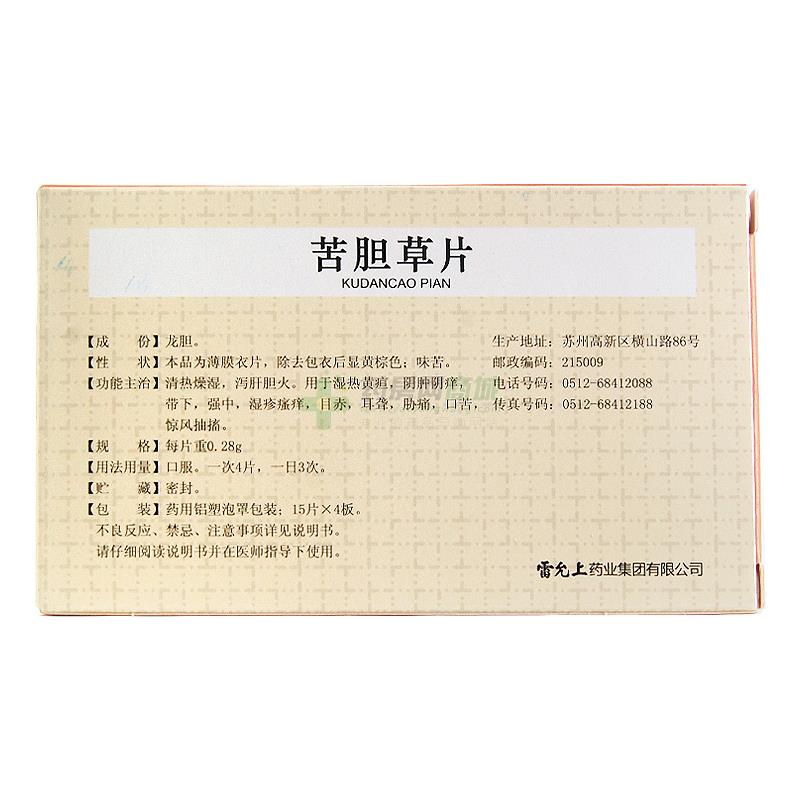 苦胆草片
KUDANCAO PIAN
【成　份】龙胆。
【性　状】本品为薄膜衣片，除去包衣后显黄棕色；味苦。
【功能主治】清热燥湿，泻肝胆火。用于湿热黄疸，阴肿阴痒，
带下，强中，湿疹瘙痒，目赤，耳聋，胁痛，口苦，
惊风抽搐。
【规　格】每片重0.28g
【用法用量】口服。一次4片，一日3次。
【贮　藏】密封。
【包　装】药用铝塑泡罩包装；15片×4板。
不良反应、禁忌、注意事项详见说明书。
请仔细阅读说明书并在医师指导下使用。
生产地址：苏州高新区横山路86号
邮政编码：215009
电话号码：0512-68412088
传真号码：0512-68412188
雷允上药业集团有限公司